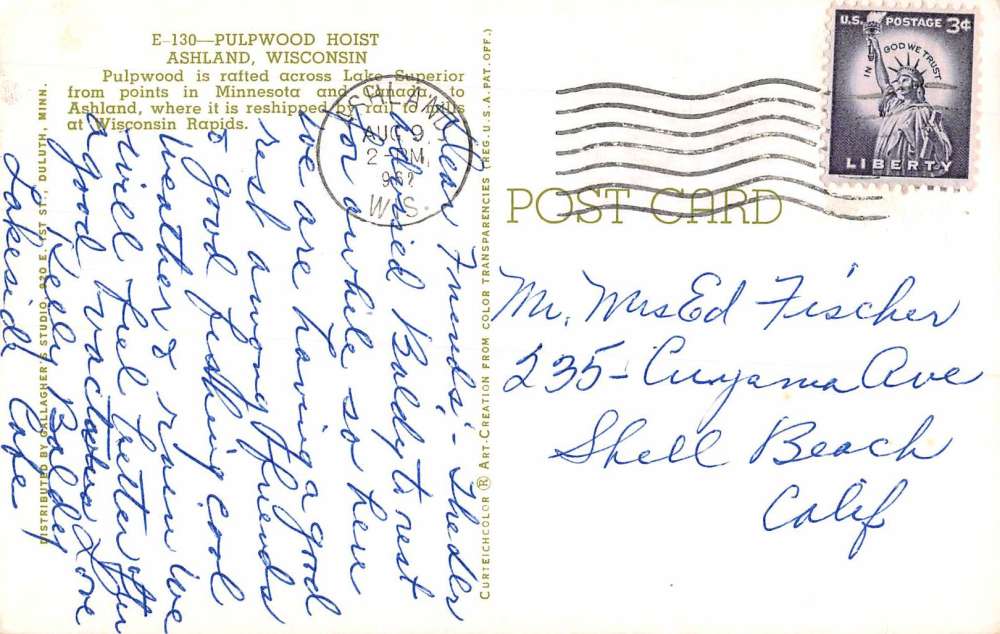 E-130—PULPWOOD HOIST
ASHLAND, WISCONSIN
Pulpwood is rafted across Lake Superior
from points in Minnesota and Canada, to
Ashland, where it is reshipped by rail to mills
at Wisconsin Rapids.
DISTRIBUTED BY GALLAGHER'S STUDIO, 920 E. 1ST ST., DULUTH, MINN.
Dear Friends:- The Drs
advised Baldy to rest
for awhile so here
we are having a good
rest among friends
& good fishing cool
weather & rain we
will feel better after
a good vactation Love
Kelly Baldy
Lakeside Cafe
CURTEICHCOLOR ® ART-CREATION FROM COLOR TRANSPARENCIES (REG. U.S.A. PAT. OFF.)
ASHLAND
AUG 9
2- PM
962
WIS.
U.S. POSTAGE 3¢
IN GOD WE TRUST
LIBERTY
POST CARD
Mr. Mrs Ed Fischer
235- Cuyama Ave
Shell Beach
Calif